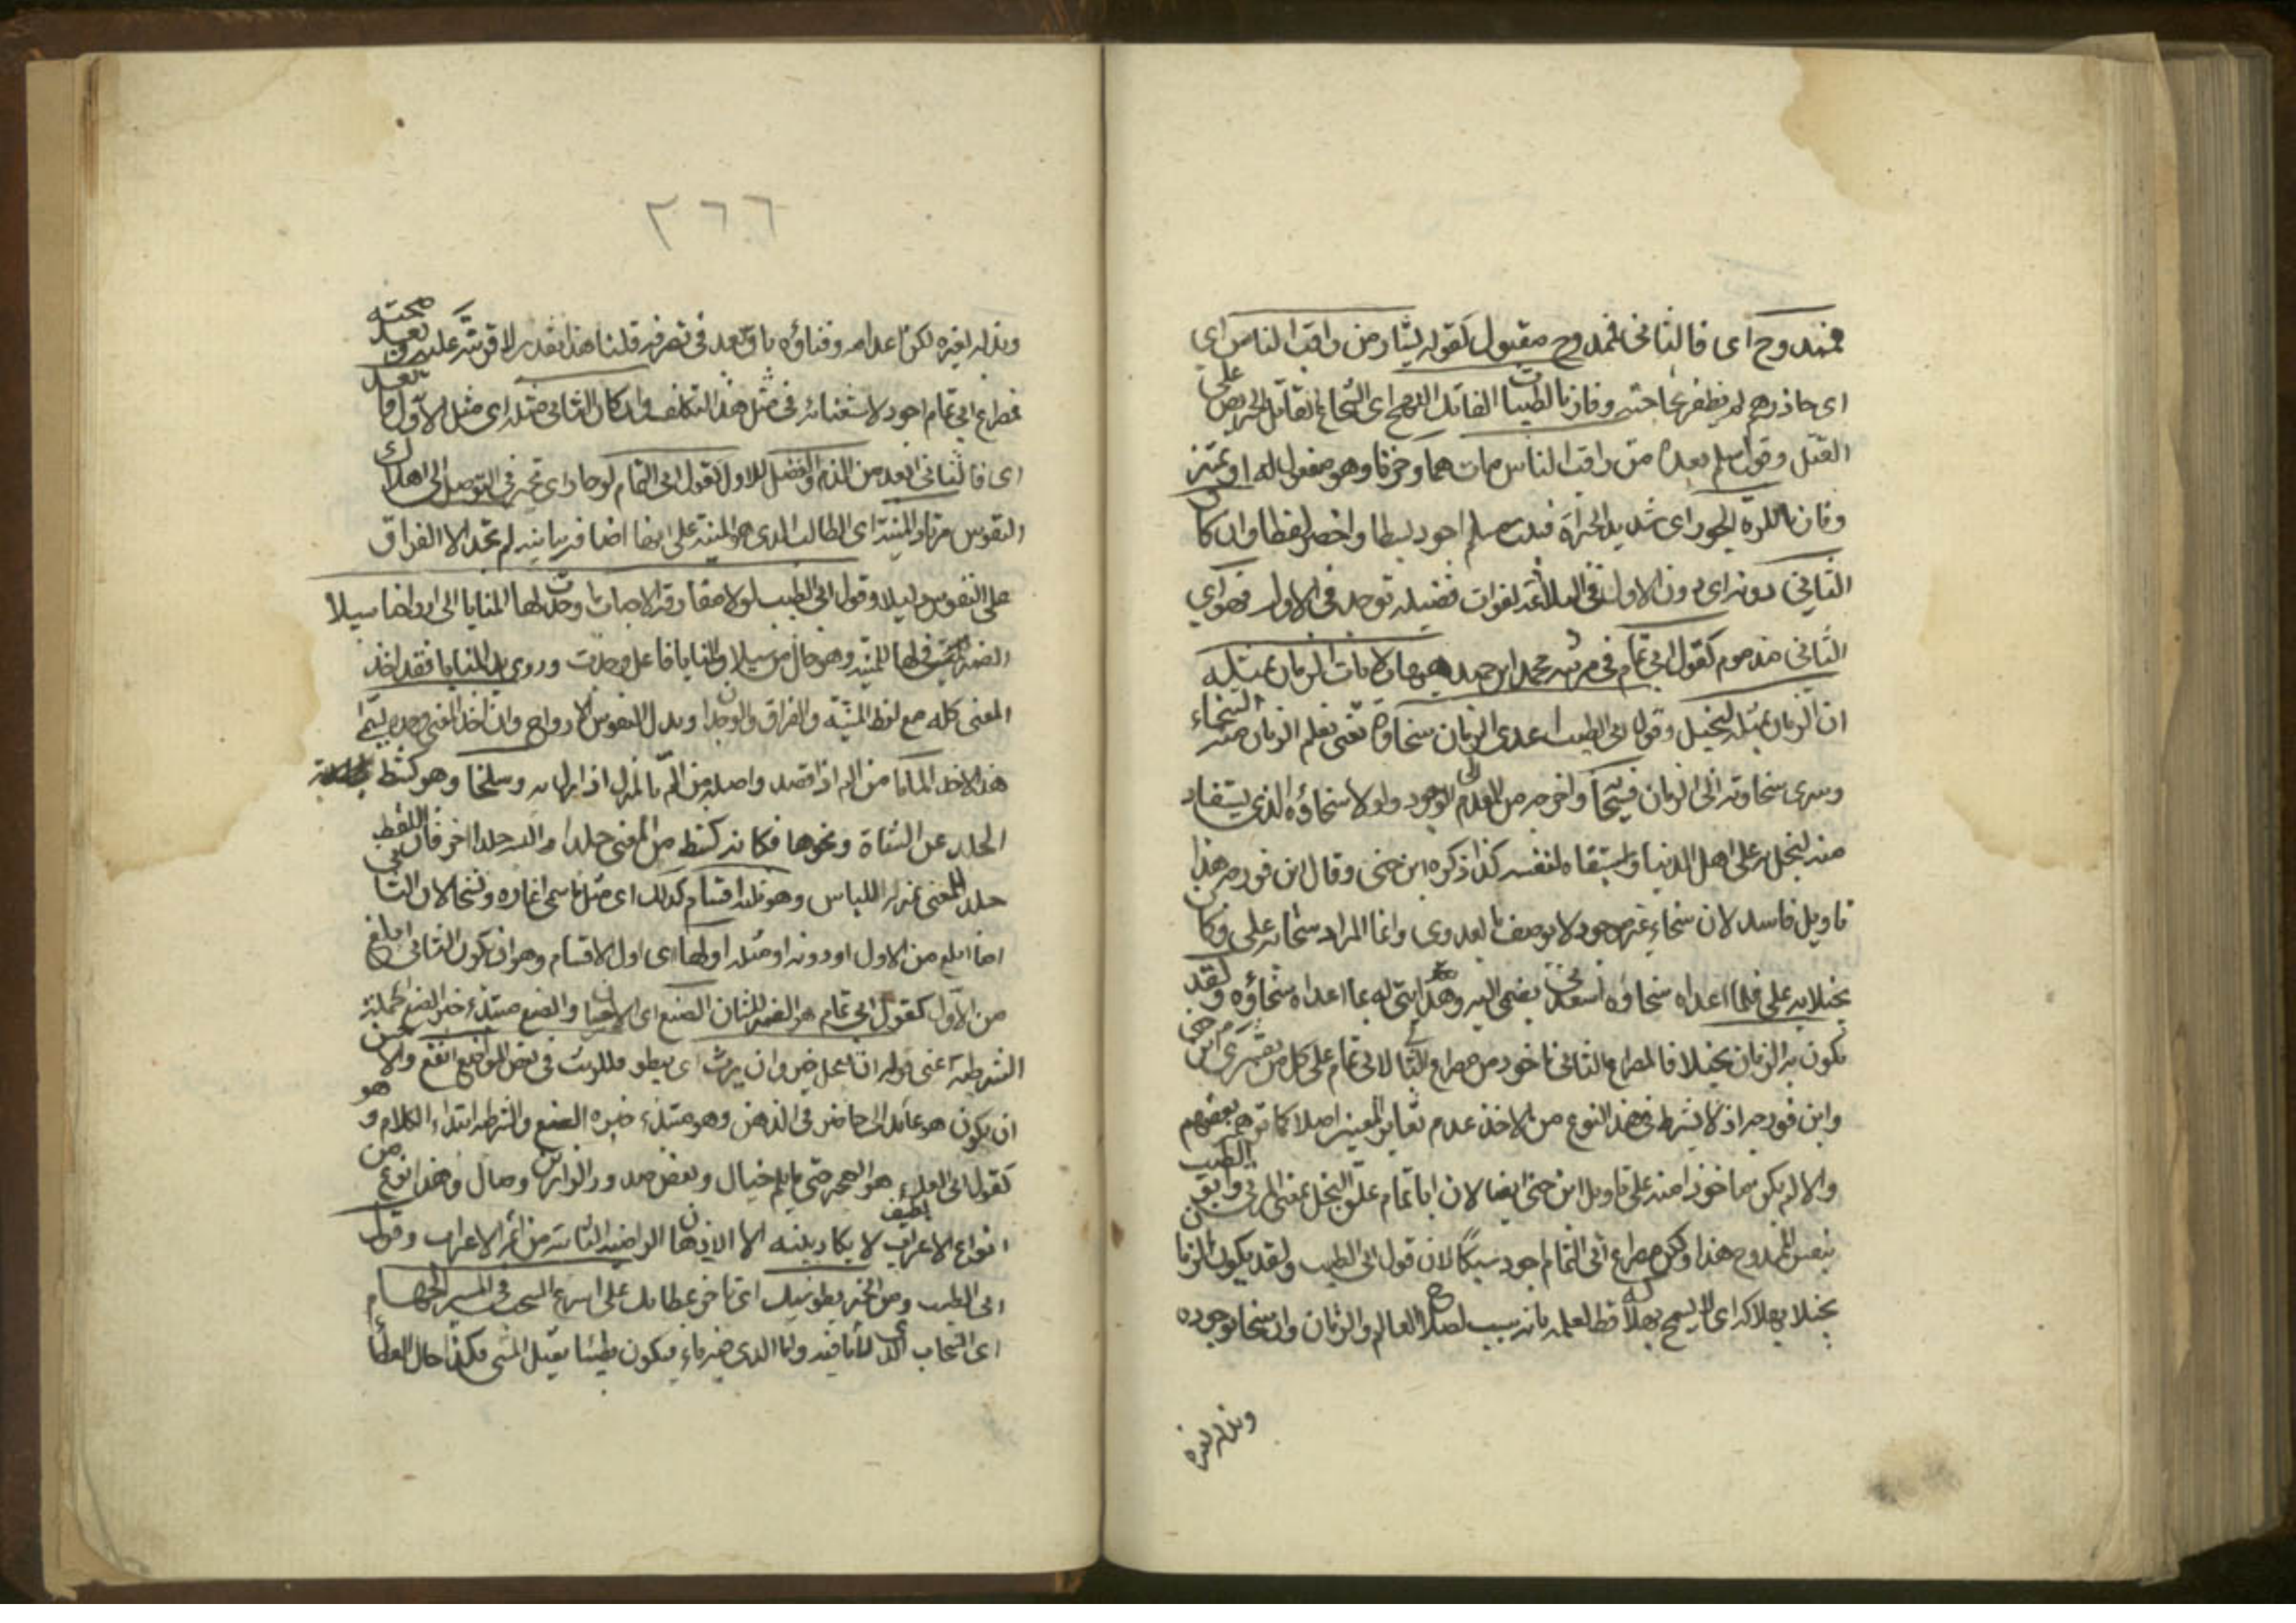 فممدوح اى فالثانى ممدوح مقبول كقول بشار من راقب الناس اى
اى حاذرهم لم يظفر بحاجته وفاز بالطيبات الفاتك اللهج اى الشجاع القتال الحريص على
القتل وقول سلم بعده من راقب الناس مات هما وحزنا وهو مفعول له او تميز
وفاز باللذة الجسور اى شديد الجرأة فبيت سلم اجود سبكا واخصر لفظا وان كان
الثانى دونه اى دون الاول فى البلاغة لفوات فضيلة توجد فى الاول فهو اى
الثانى مذموم كقول ابى تمام فى مرثية محمد ابن حميد هيهات لا يأت الزمان بمثله
ان الزمان بمثله لبخيل وقول ابى الطيب اعدى الزمان سخاؤه يعنى تعلم الزمان منه السخاء
وسرى سخاوته الى الزمان فسخا واخرجه من العدم الى الوجود ولولا سخاؤه الذى يستفاد
منه لبخل به على اهل الدنيا واستبقاه لنفسه كذا ذكره ابن جنى وقال ابن فورجه هذا
تاويل فاسد لان سخاء غير موجود لا يوصف بالعدوى وانما المراد سخا به على وكان
بخيلا به على فلما اعداه سخاؤه اسعدنى بضمى اليه وهدايتى له بما اعداه سخاؤه ولقد
يكون به الزمان بخيلا فالمصراع الثانى ماخوذ من مصراع الثانى لابى تمام على كل من تفسيرى ابن جنى
وابن فورجه اذ لا يشترط فى هذا النوع من الاخذ عدم تغاير المعنيين اصلا كما توهم بعضهم
والا لم يكن ماخوذا منه على تاويل ابن جنى ايضا لان ابا تمام علق البخل بمثل المرثى وابو الطيب
بنفس الممدوح هذا ولكن مصراع ابى التمام اجود سبكا لان قول ابى الطيب ولقد يكون به الزمان
بخيلا بهلاكه اى لا يسمح بهلاكه قط لعلمه بانه سبب لصلاح العالم والزمان وان سخا بوجوده
وبذله لغيره
٢٦٦
وبذله لغيره لكن اعدامه وفناؤه باق بعد فى تصرفه قلنا هذا تقدير لا قرينة عليه وبعد صحته
فمصراع ابى تمام اجود لاستغنائه فى مثل هذا التكلف وان كان الثانى مثله اى مثل الاول فابعد
اى فالثانى ابعد من الذم والفضل للاول كقول ابى التمام لو حار اى تحير فى التوصل الى اهلاك
النفوس مرتاد المنية اى الطالب الذى هو المنية على انها اضافة بيانية لم تجد الا الفراق
على النفوس دليلا وقول ابى الطيب لولا مفارقة الاحباب ما وجدت لها المنايا الى ارواحنا سبلا
الضمير فى لها للمنية وهو حال من سبلا والمنايا فاعل وجدت وروى يد المنايا فقد اخذ
المعنى كله مع لفظ المنية والفراق والوجدان وبدل النفوس الارواح وان اخذ المعنى وحده سمى
هذا الاخذ الماما من الم اذا قصد واصله من الم بالمنزل اذا نزل به وسلخا وهو كشط
الجلد عن الشاة ونحوها فكانه كشط من المعنى جلدا والبسه جلدا اخر فان اللفظ
جلد للمعنى بمنزلة اللباس وهو ثلثة اقسام كذلك اى مثل ما سمى اغارة ونسخا لان الثانى
اما ابلغ من الاول او دونه او مثله اولها اى اول الاقسام وهو ان يكون الثانى ابلغ
من الاول كقول ابى تمام هو الضمير للشان الصنع اى الاحسان والصنع مبتداء خبره الجملة
الشرطية اعنى قوله ان يعجل فخير وان يرث اى يبطو فللريث فى بعض المواضع انفع والاحسن
ان يكون هو عائدا الى حاضر فى الذهن وهو مبتداء خبره الصنع والشرطية ابتداء الكلام وهو
كقول ابى العلاء هو الهجر حتى ما يلم خيال وبعض صدود الزائرين وصال وهذا نوع من
انواع الاعراب لطيف لا يكاد يتنبه له الا الاذهان الراضية من ائمة الاعراب وقول
ابى الطيب ومن الخير بطو سيبك اى تاخر عطائك على اسرع السحب فى المسير الجهام
اى السحاب الذى لا ماء فيه واما الذى فيه ماء فيكون بطيئا ثقيل المشى فكذا حال العطاء